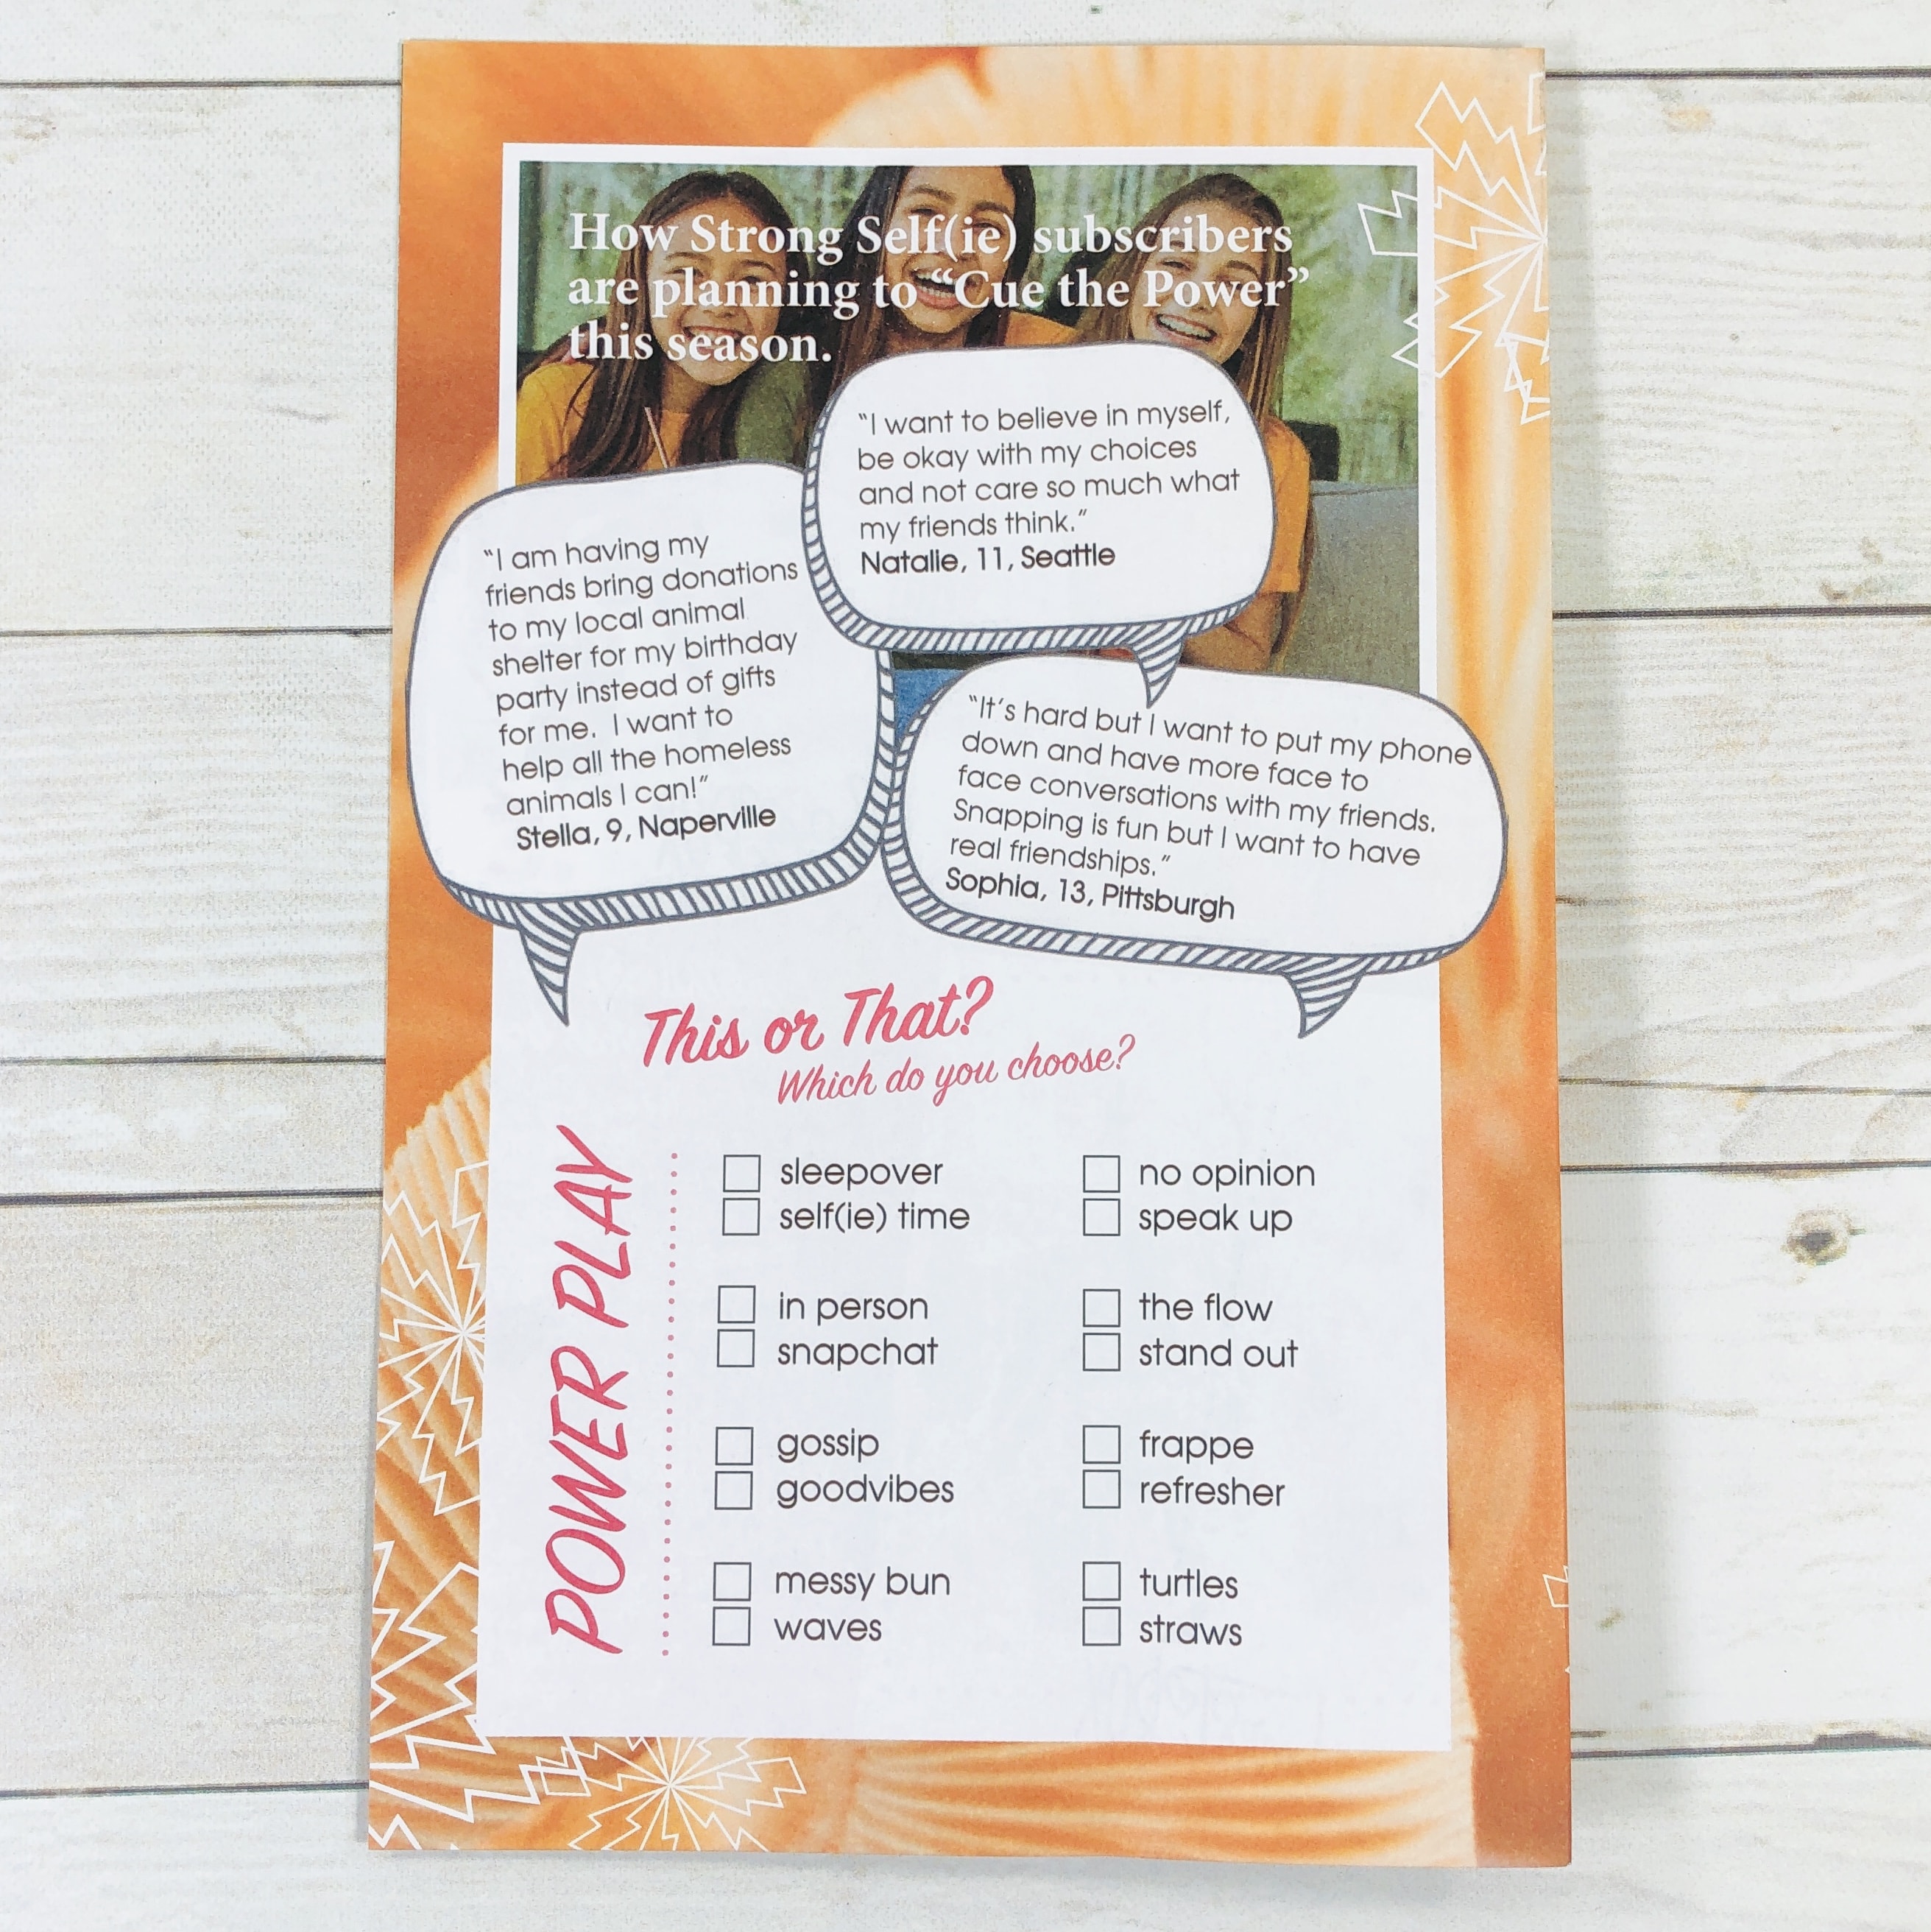 How Strong Self(ie) subscribers
are planning to “Cue the Power”
this season.
“I want to believe in myself,
be okay with my choices
and not care so much what
my friends think.”
Natalie, 11, Seattle
“I am having my
friends bring donations
to my local animal
shelter for my birthday
party instead of gifts
for me.  I want to
help all the homeless
animals I can!”
Stella, 9, Naperville
“It’s hard but I want to put my phone
down and have more face to
face conversations with my friends.
Snapping is fun but I want to have
real friendships.”
Sophia, 13, Pittsburgh
This or That?
Which do you choose?
POWER PLAY
sleepover
self(ie) time
in person
snapchat
gossip
goodvibes
messy bun
waves
no opinion
speak up
the flow
stand out
frappe
refresher
turtles
straws